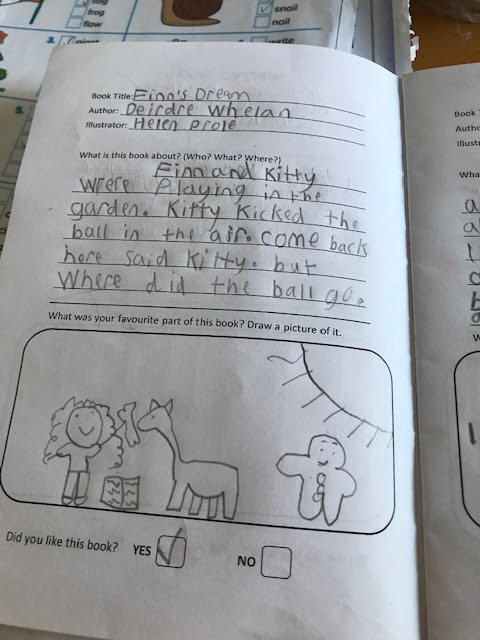 frog
flaw
snail
nail
3.
write
5.
Book Title: Finn's Dream
Author: Deirdre Whelan
Illustrator: Helen Prole
What is this book about? (Who? What? Where?)
Finn and Kitty
were Playing in the
garden. Kitty Kicked the
ball in the air. come back
here said Kitty. but
Where did the ball goe
What was your favourite part of this book? Draw a picture of it.
Did you like this book? YES NO
Book
Autho
Illustr
Wha